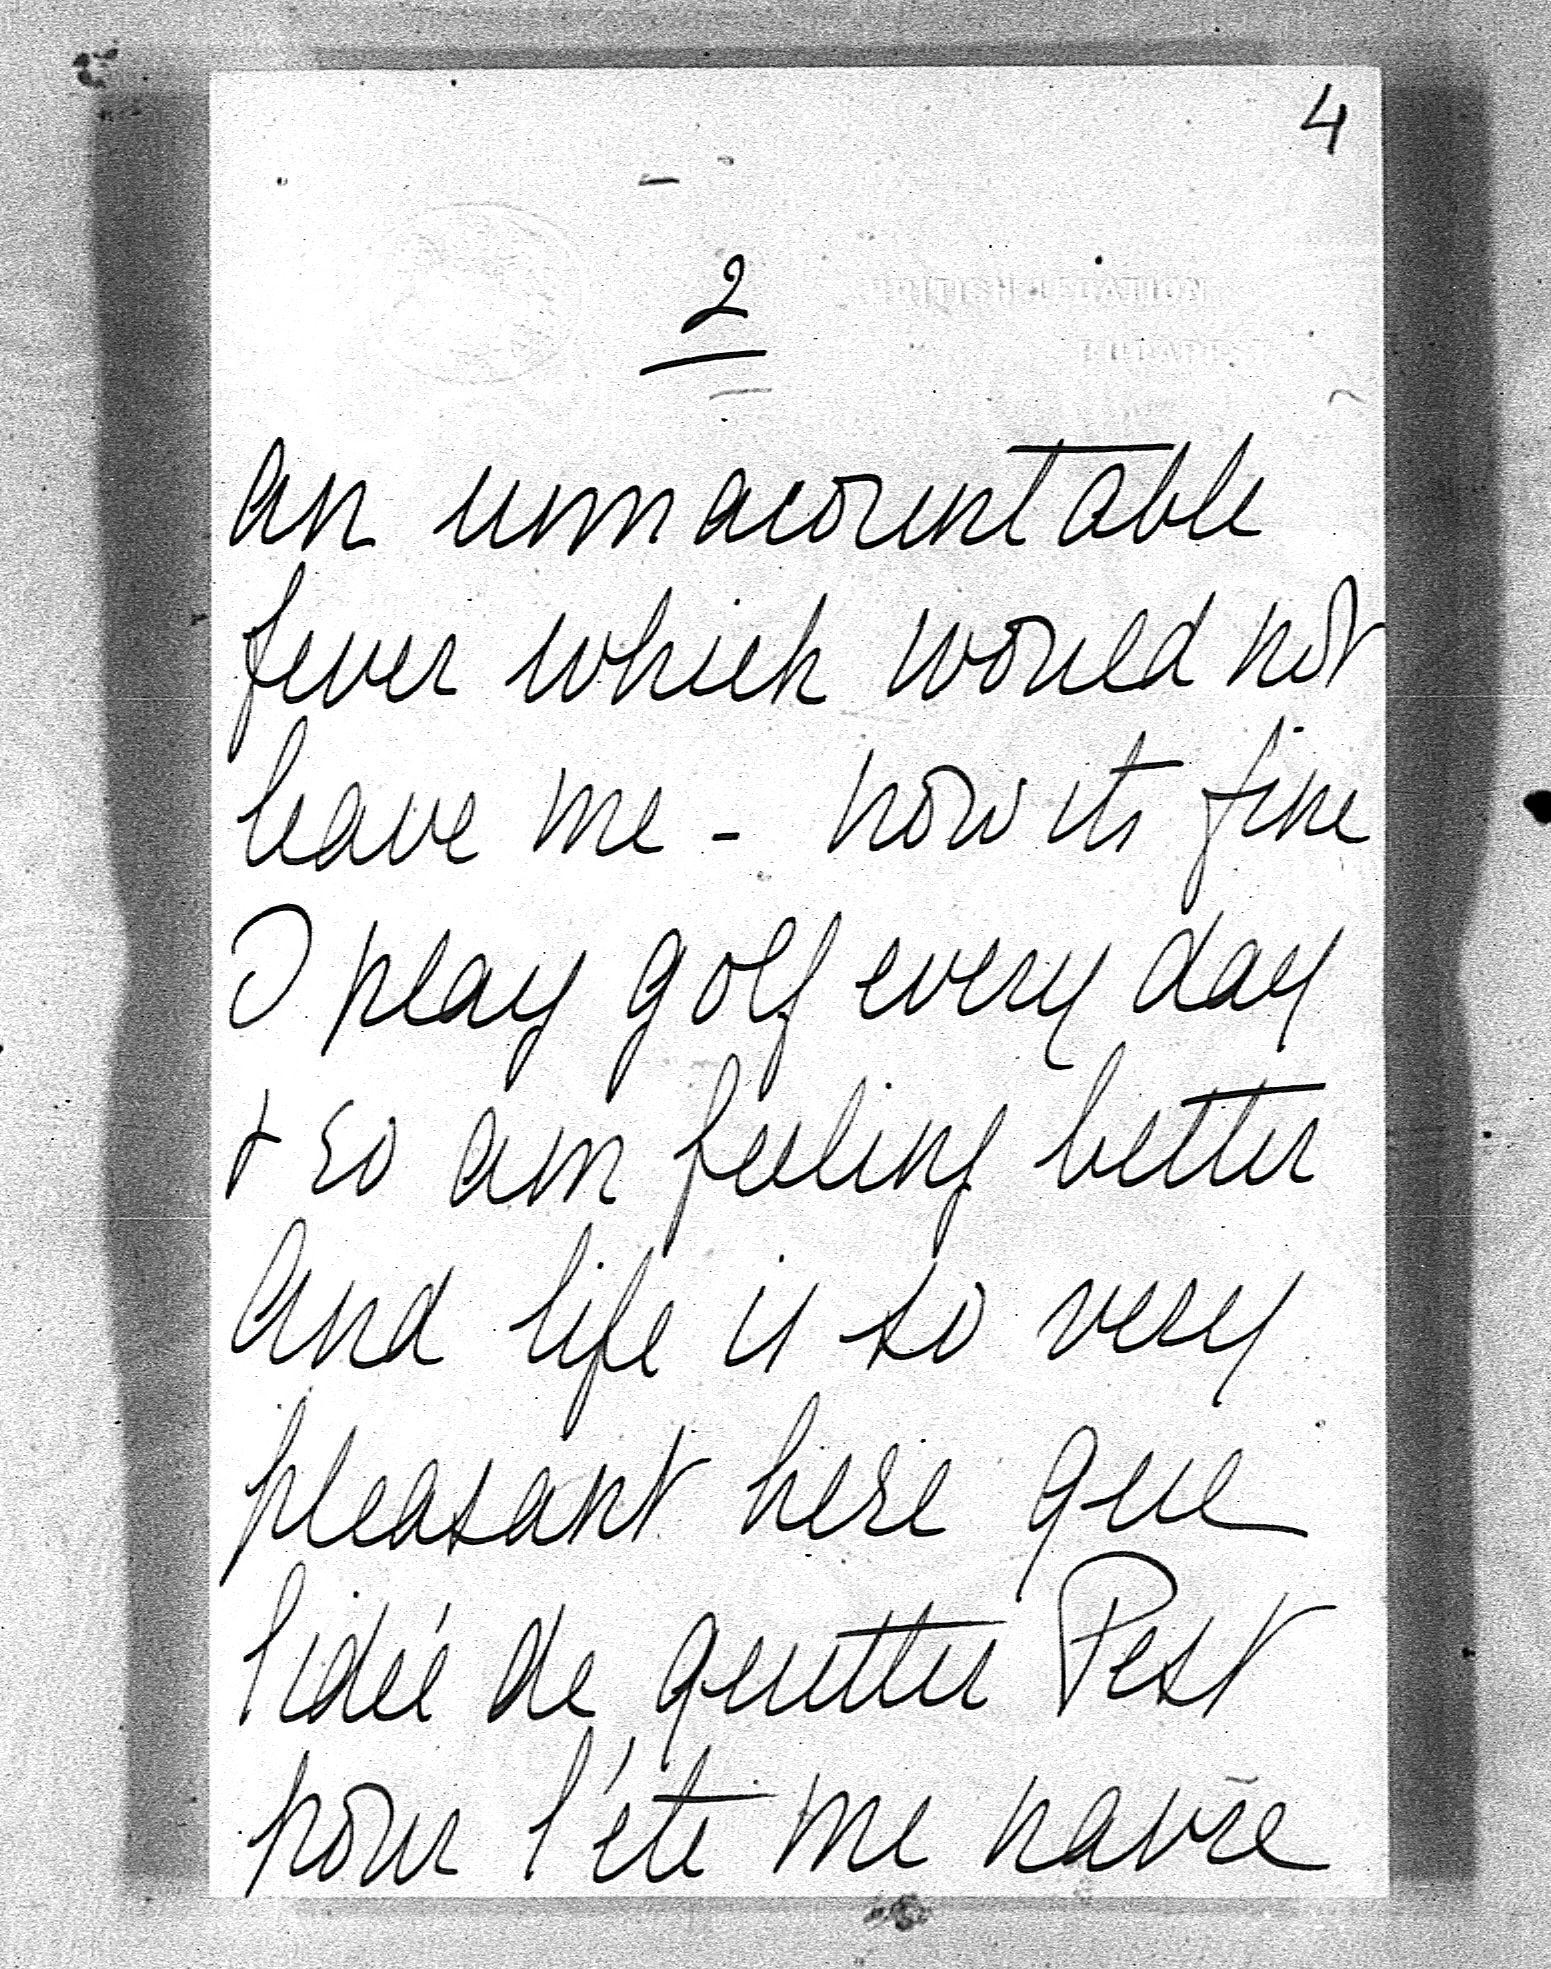 4
2
an unnacountable
fever which would not
leave me - now its fine
I play golf every day
& so am feeling better
and life is so very
pleasant here que
l'ideé de quitter Pest
pour l'eté me navre